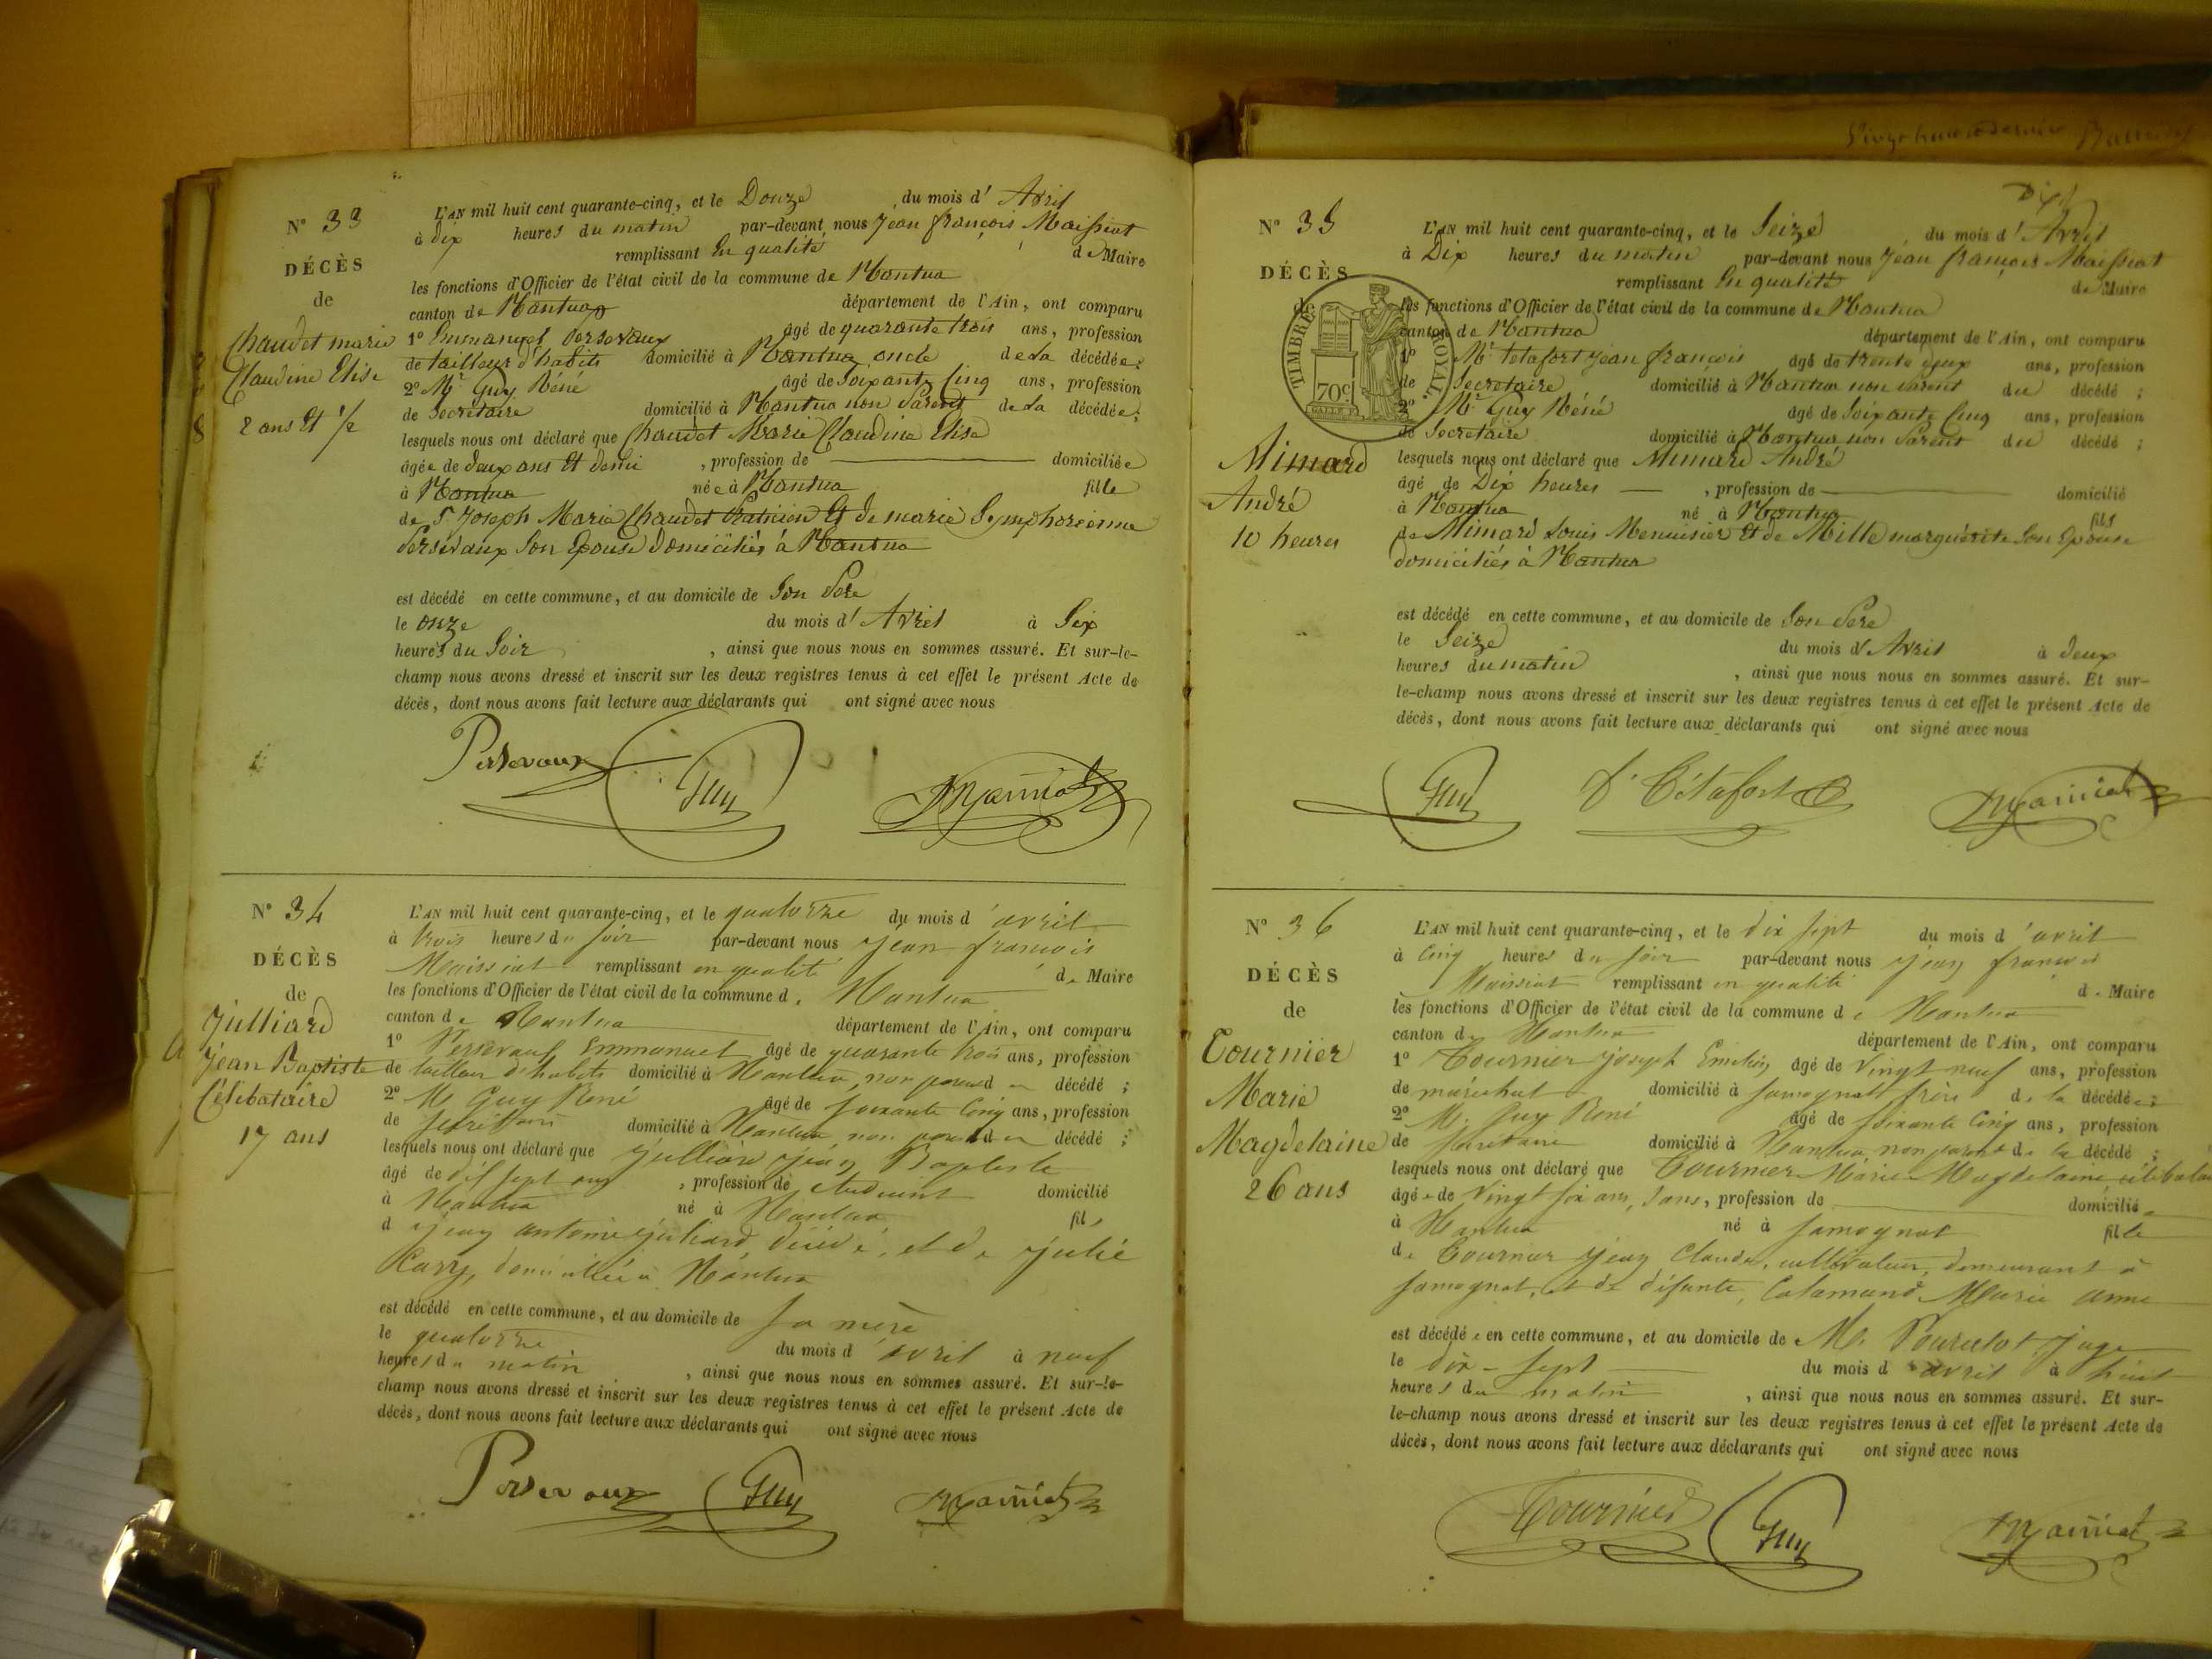 N° 33
DÉCÈS
de
Chaudet marie
Claudine Elise
2 ans Et 1/2
L'AN mil huit cent quarante-cinq, et le Douze du mois d' Avril
à dix heures du matin par-devant nous Jean françois Maissiat
remplissant En qualité de Maire
les fonctions d'Officier de l'état civil de la commune de Nantua
canton de Nantua département de l'Ain, ont comparu
1° Emmanuel Persevaux âgé de quarante trois ans, profession
de tailleur d'habits domicilié à Nantua oncle de la décédée;
2° Mr Guy Réné âgé de Soixante Cinq ans, profession
de Secretaire domicilié à Nantua non Parent de la décédée;
lesquels nous ont déclaré que Chaudet Marie Claudine Elise
âgée de deux ans Et demi , profession de domiciliée
à Nantua née à Nantua fille
de Sr Joseph Marie Chaudet Et de marie Symphorienne
Persevaux Son Epouse domiciliés à Nantua
est décédé en cette commune, et au domicile de Son Pere
le onze du mois d' Avril à Six
heures du Soir , ainsi que nous nous en sommes assuré. Et sur-le-
champ nous avons dressé et inscrit sur les deux registres tenus à cet effet le présent Acte de
décès, dont nous avons fait lecture aux déclarants qui ont signé avec nous
Persevaux Guy Maissiat
N° 34
DÉCÈS
de
Julliard
Jean Baptiste
Célibataire
17 ans
L'AN mil huit cent quarante-cinq, et le quatorze du mois d'avril
à trois heures du soir par-devant nous Jean francois
Maissiat remplissant en qualité de Maire
les fonctions d'Officier de l'état civil de la commune de Nantua
canton de Nantua département de l'Ain, ont comparu
1° Persevaux Emmanuel âgé de quarante trois ans, profession
de tailleur d'habits domicilié à Nantua, non parend du décédé ;
2° Mr Guy René âgé de soixante Cinq ans, profession
de secrétaire domicilié à Nantua, non parend du décédé ;
lesquels nous ont déclaré que Julliard Jean Baptiste
âgé de dix sept ans , profession de étudiant domicilié
à Nantua né à Nantua fils
d Jean antoine Julliard décédé, et de Julie
domiciliée à Nantua
est décédé en cette commune, et au domicile de sa mère
le quatorze du mois d avril à neuf
heures du matin , ainsi que nous nous en sommes assuré. Et sur-le-
champ nous avons dressé et inscrit sur les deux registres tenus à cet effet le présent Acte de
décès, dont nous avons fait lecture aux déclarants qui ont signé avec nous
Persevaux Guy Maissiat
Dix
N° 35
DÉCÈS
de
TIMBRE ROYAL
70c
Mimard
André
10 heures
L'AN mil huit cent quarante-cinq, et le Seize du mois d' Avril
à Dix heures du matin par-devant nous Jean françois Maissiat
remplissant En qualité de Maire
les fonctions d'Officier de l'état civil de la commune de Nantua
canton de Nantua département de l'Ain, ont comparu
1° Mr Tetafort Jean françois âgé de trente deux ans, profession
de Secretaire domicilié à Nantua non parent du décédé ;
2° Mr Guy Réné âgé de Soixante Cinq ans, profession
de Secretaire domicilié à Nantua non Parent du décédé ;
lesquels nous ont déclaré que Mimard André
âgé de Dix heures , profession de domicilié
à Nantua né à Nantua fils
de Mimard Louis Menuisier Et de Mille marguérite Son Epouse
domiciliés à Nantua
est décédé en cette commune, et au domicile de Son Pere
le Seize du mois d'Avril à deux
heures du matin , ainsi que nous nous en sommes assuré. Et sur-
le-champ nous avons dressé et inscrit sur les deux registres tenus à cet effet le présent Acte de
décès, dont nous avons fait lecture aux déclarants qui ont signé avec nous
Guy Tétafort Maissiat
N° 36
DÉCÈS
de
Tournier
Marie
Magdelaine
26 ans
L'AN mil huit cent quarante-cinq, et le dix sept du mois d'avril
à Cinq heures du soir par-devant nous Jean francois
Maissiat remplissant en qualité de Maire
les fonctions d'Officier de l'état civil de la commune de Nantua
canton de Nantua département de l'Ain, ont comparu
1° Tournier Joseph âgé de Vingt neuf ans, profession
de maréchal domicilié à Samognat frère de la décédée;
2° Mr Guy René âgé de soixante Cinq ans, profession
de secretaire domicilié à Nantua, non parent de la décédé ;
lesquels nous ont déclaré que Tournier Marie Magdelaine
âgée de Vingt six ans, sans, profession de domiciliée
à Nantua né à Samognat fille
de Tournier Jean Claude, cultivateur, demeurant à
Samognat, et de défunte, Marie anne
est décédée en cette commune, et au domicile de Mr Pourcelot, juge
le dix-sept du mois d avril à huit
heures du matin , ainsi que nous nous en sommes assuré. Et sur-
le-champ nous avons dressé et inscrit sur les deux registres tenus à cet effet le présent Acte de
décès, dont nous avons fait lecture aux déclarants qui ont signé avec nous
Tournier Guy Maissiat